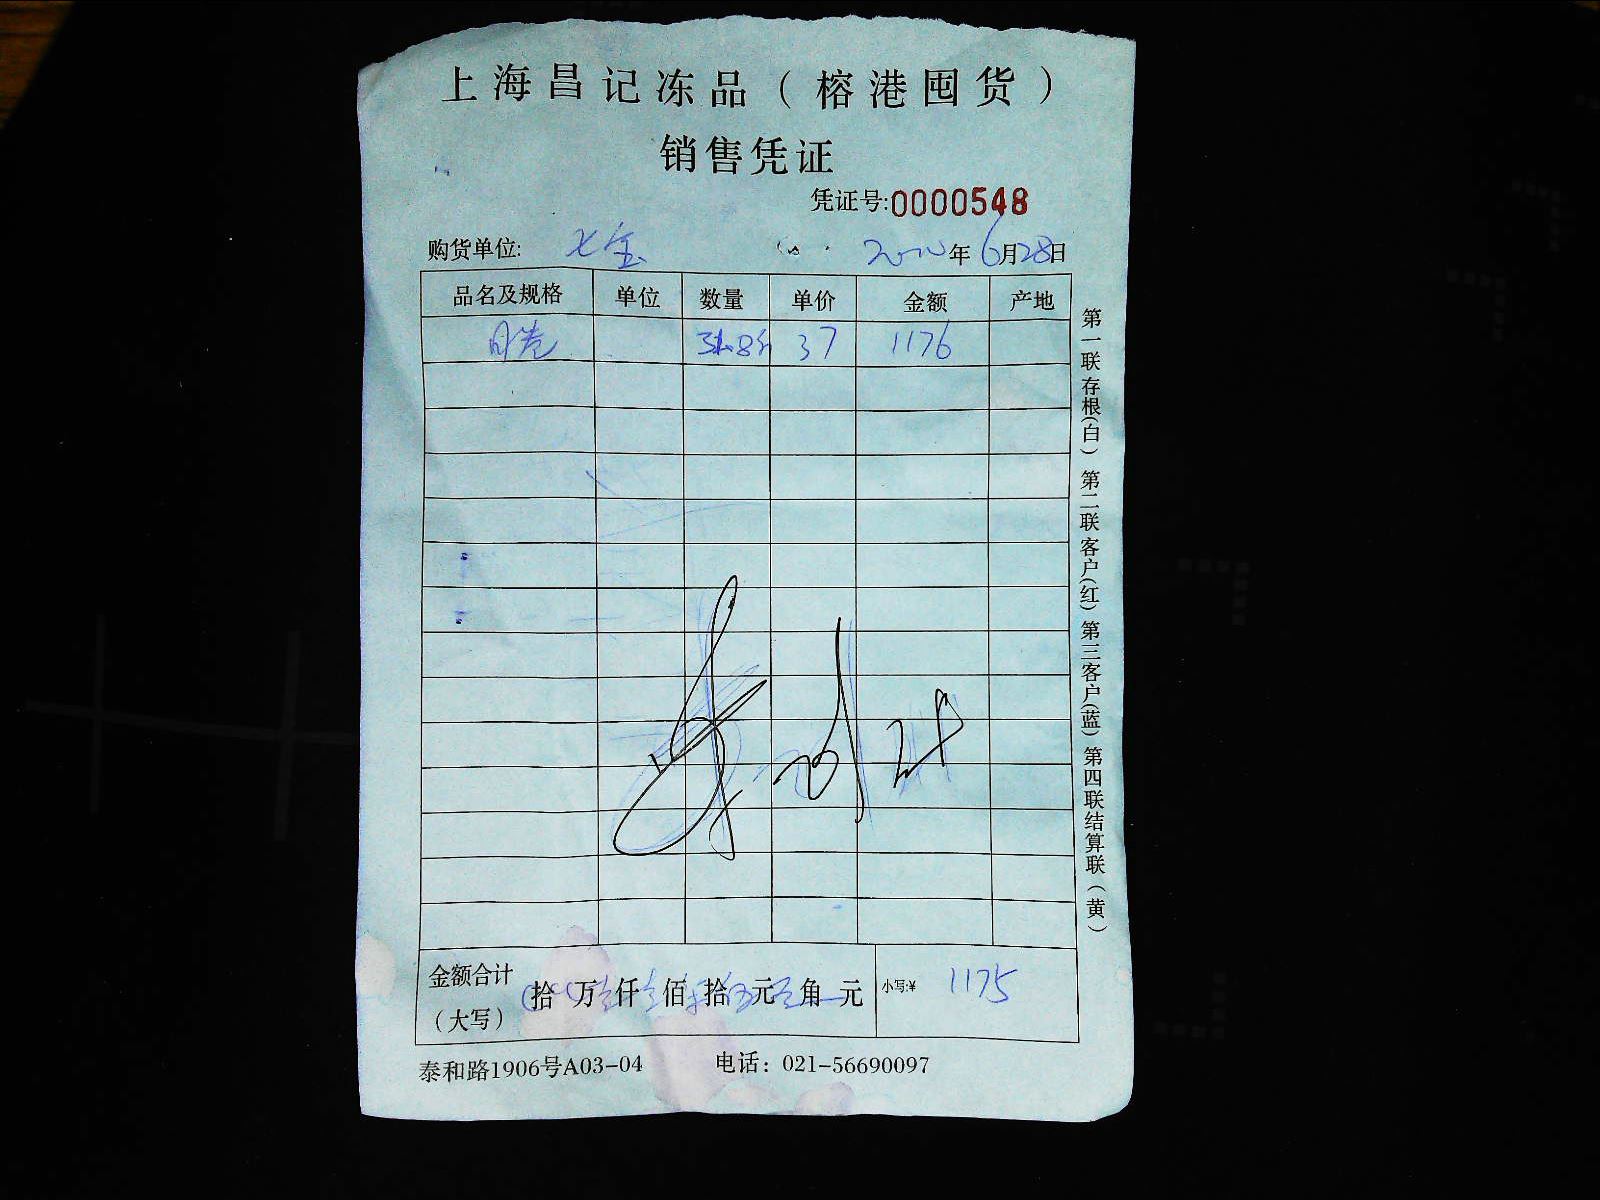 上海昌记冻品（榕港囤货）
销售凭证
凭证号:0000548
购货单位: 七宝 年6月28日
品名及规格 单位 数量 单价 金额 产地
37 1176
金额合计（大写） 拾 万 仟 佰 拾 元 角 元 小写:¥ 1175
泰和路1906号A03-04 电话：021-56690097
第一联存根(白) 第二联客户(红) 第三客户(蓝) 第四联结算联(黄)